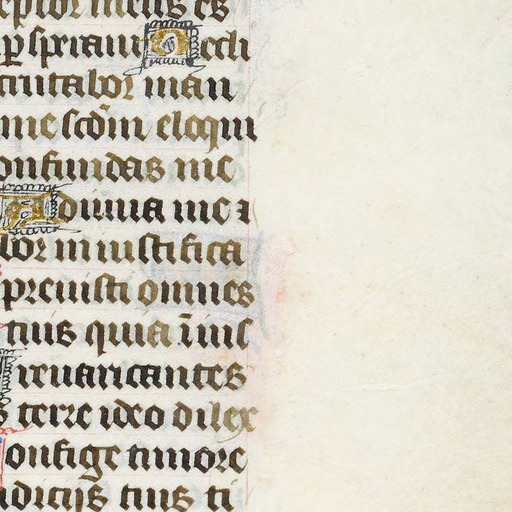 eptor meus es
ꝑ speraui Decli
crutabor man
me scd̄m eloqui
onfundas me
Adiuua me ⁊
bor in iustifica
preuisti omnes
tiuis quia iniuſ
reuaricantes
s terre ideo dilex
onfige timore
udicijs tuis ti